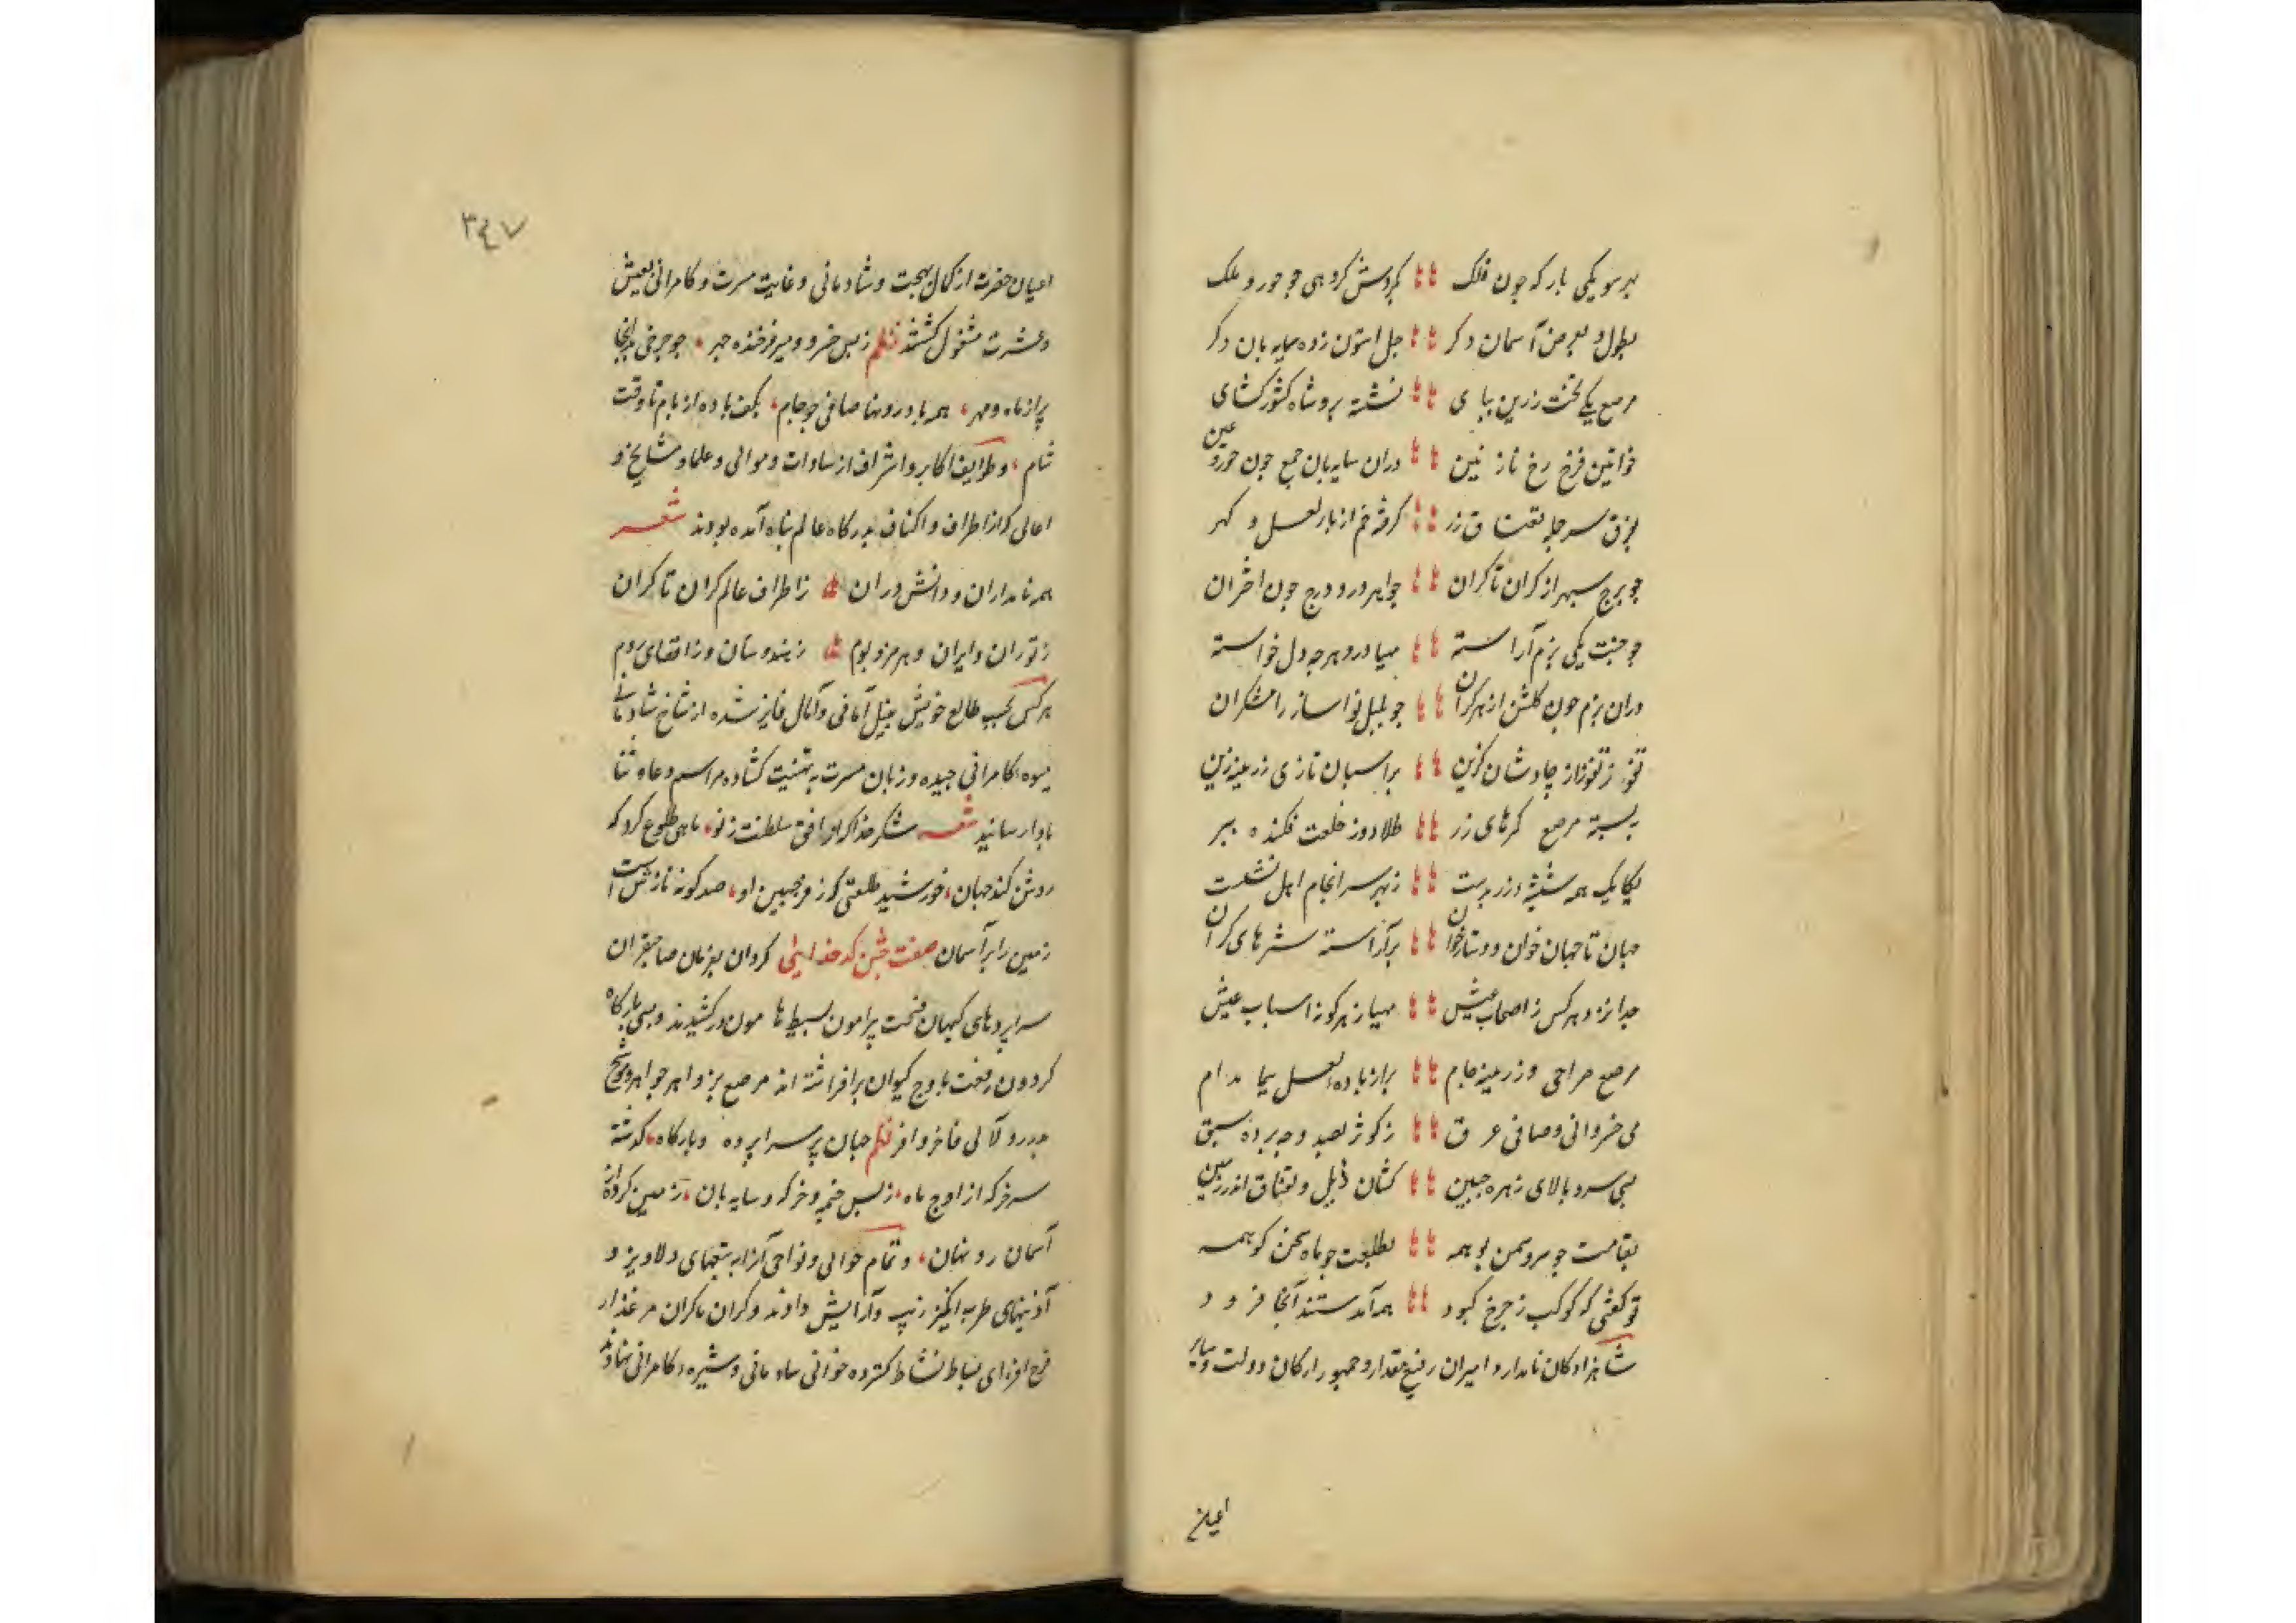 بهر سو یکی بارکه چون فلک کردش کروهی جو حور و ملک
بطول و بعرض آسمان دکر جل استون زده سایه بان دکر
مرصع یکی تخت زرین بپای نشسته برو شاه کشورکشای
خواتین فرخ رخ نازنین دران سایه بان جمع چون حور عین
بفرق سر جمله بغتاق زر کرفته خم از بار لعل و کهر
چو برج سپهر از کران تا کران جواهر درو درج چون اختران
چو جنت یکی بزم آراسته مهیا درو هرچه دل خواسته
دران بزم چون کلشن از هر کران چو بلبل نوا ساز رامشکران
تفوز تفوزاز چاوشان کزین بر اسبان تازی زرینه زین
ببسته مرصع کمرهای زر طلادوز خلعت فکنده ببر
یکایک همه ششپر زر بدست زبهر سرانجام اهل نشست
جهان تا جهان خوان و دستارخوان برآراسته سترهای کران
جدا نزد هر کس ز اصحاب عیش مهیا ز هرکونه اسباب عیش
مرصع صراحی و زرینه جام پر از باده لعل پیما مدام
می خسروانی و صافی عرق ز کوثر بصد وجه برده سبق
بسی سرو بالای زهره جبین کشان ذیل و بغتاق اندر زمین
بقامت چو سرو سمن بو همه بطلعت چو ماه سخن کو همه
تو کفتی که کوکب ز چرخ کبود همه آمدستند آنجا فرود
شاهزادکان نامدار و امیران رفیع مقدار و جمهور ارکان دولت و سایر
اعیان
٣٤٧
اعیان حضرت از کمال بهجت و شادمانی و غایت مسرت و کامرانی بعیش
و عشرت مشغول کشتند نظم زبس خسرو و میر فرخنده چهر چو چرخی بد آنجا
پر از ماه و مهر همه با درونها صافی چو جام بکف باده از بام تا وقت
شام و طوایف اکابر و اشراف از سادات و موالی و علما و مشایخ و
اهالی که از اطراف و اکناف بدرکاه عالم پناه آمده بودند شعر
همه نامداران و دانش وران ز اطراف عالم کران تا کران
ز توران و ایران و هر مرز و بوم ز هندوستان و ز اقصای روم
هرکس بحسب طالع خویش بنیل امانی و آمال فایز شده از شاخ شادمانی
میوه کامرانی چیده و زبان مسرت به تهنیت کشاده مراسم دعا و ثنا
بادا رسانید شعر شکر خدا که از افق سلطنت ز نو ماهی طلوع کرد که
روشن کند جهان خورشید طلعتی که ز فر جبین او صد کونه نازش است
زمین را بر آسمان صفت جشن کدخدایی کردان بفرمان صاحبقران
سراپردهای کیهان فسحت پیرامون بسیط هامون درکشیدند و بسی بارکاه
کردون رفعت باوج کیوان برافراشته اند مرصع بزواهر جواهر و موشح
بدرر و لآلی فاخر وافر نظم جهان پر سراپرده و بارکاه کذشته
سر خرکه از اوج ماه زبس خیمه و خرکه و سایه بان زمین کرده از
آسمان رو نهان و تمام حوالی و نواحی آنرا به تعبیهای دلاویز و
آذینهای طرب انکیز زیب و آرایش دادند و کران تا کران مرغزار
فرح افزای بساط نشاط کسترده خوانی شادمانی و شیره کامرانی نهادند